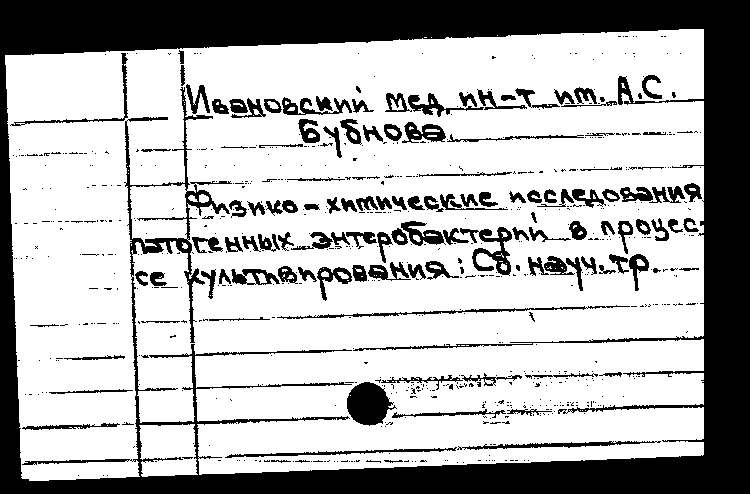 Ивановский мед. ин-т им. А.С.
Бубнова.
Физико-химические исследования
патогенных энтеробактерий в процес-
се культивирования: Сб. науч. тр.